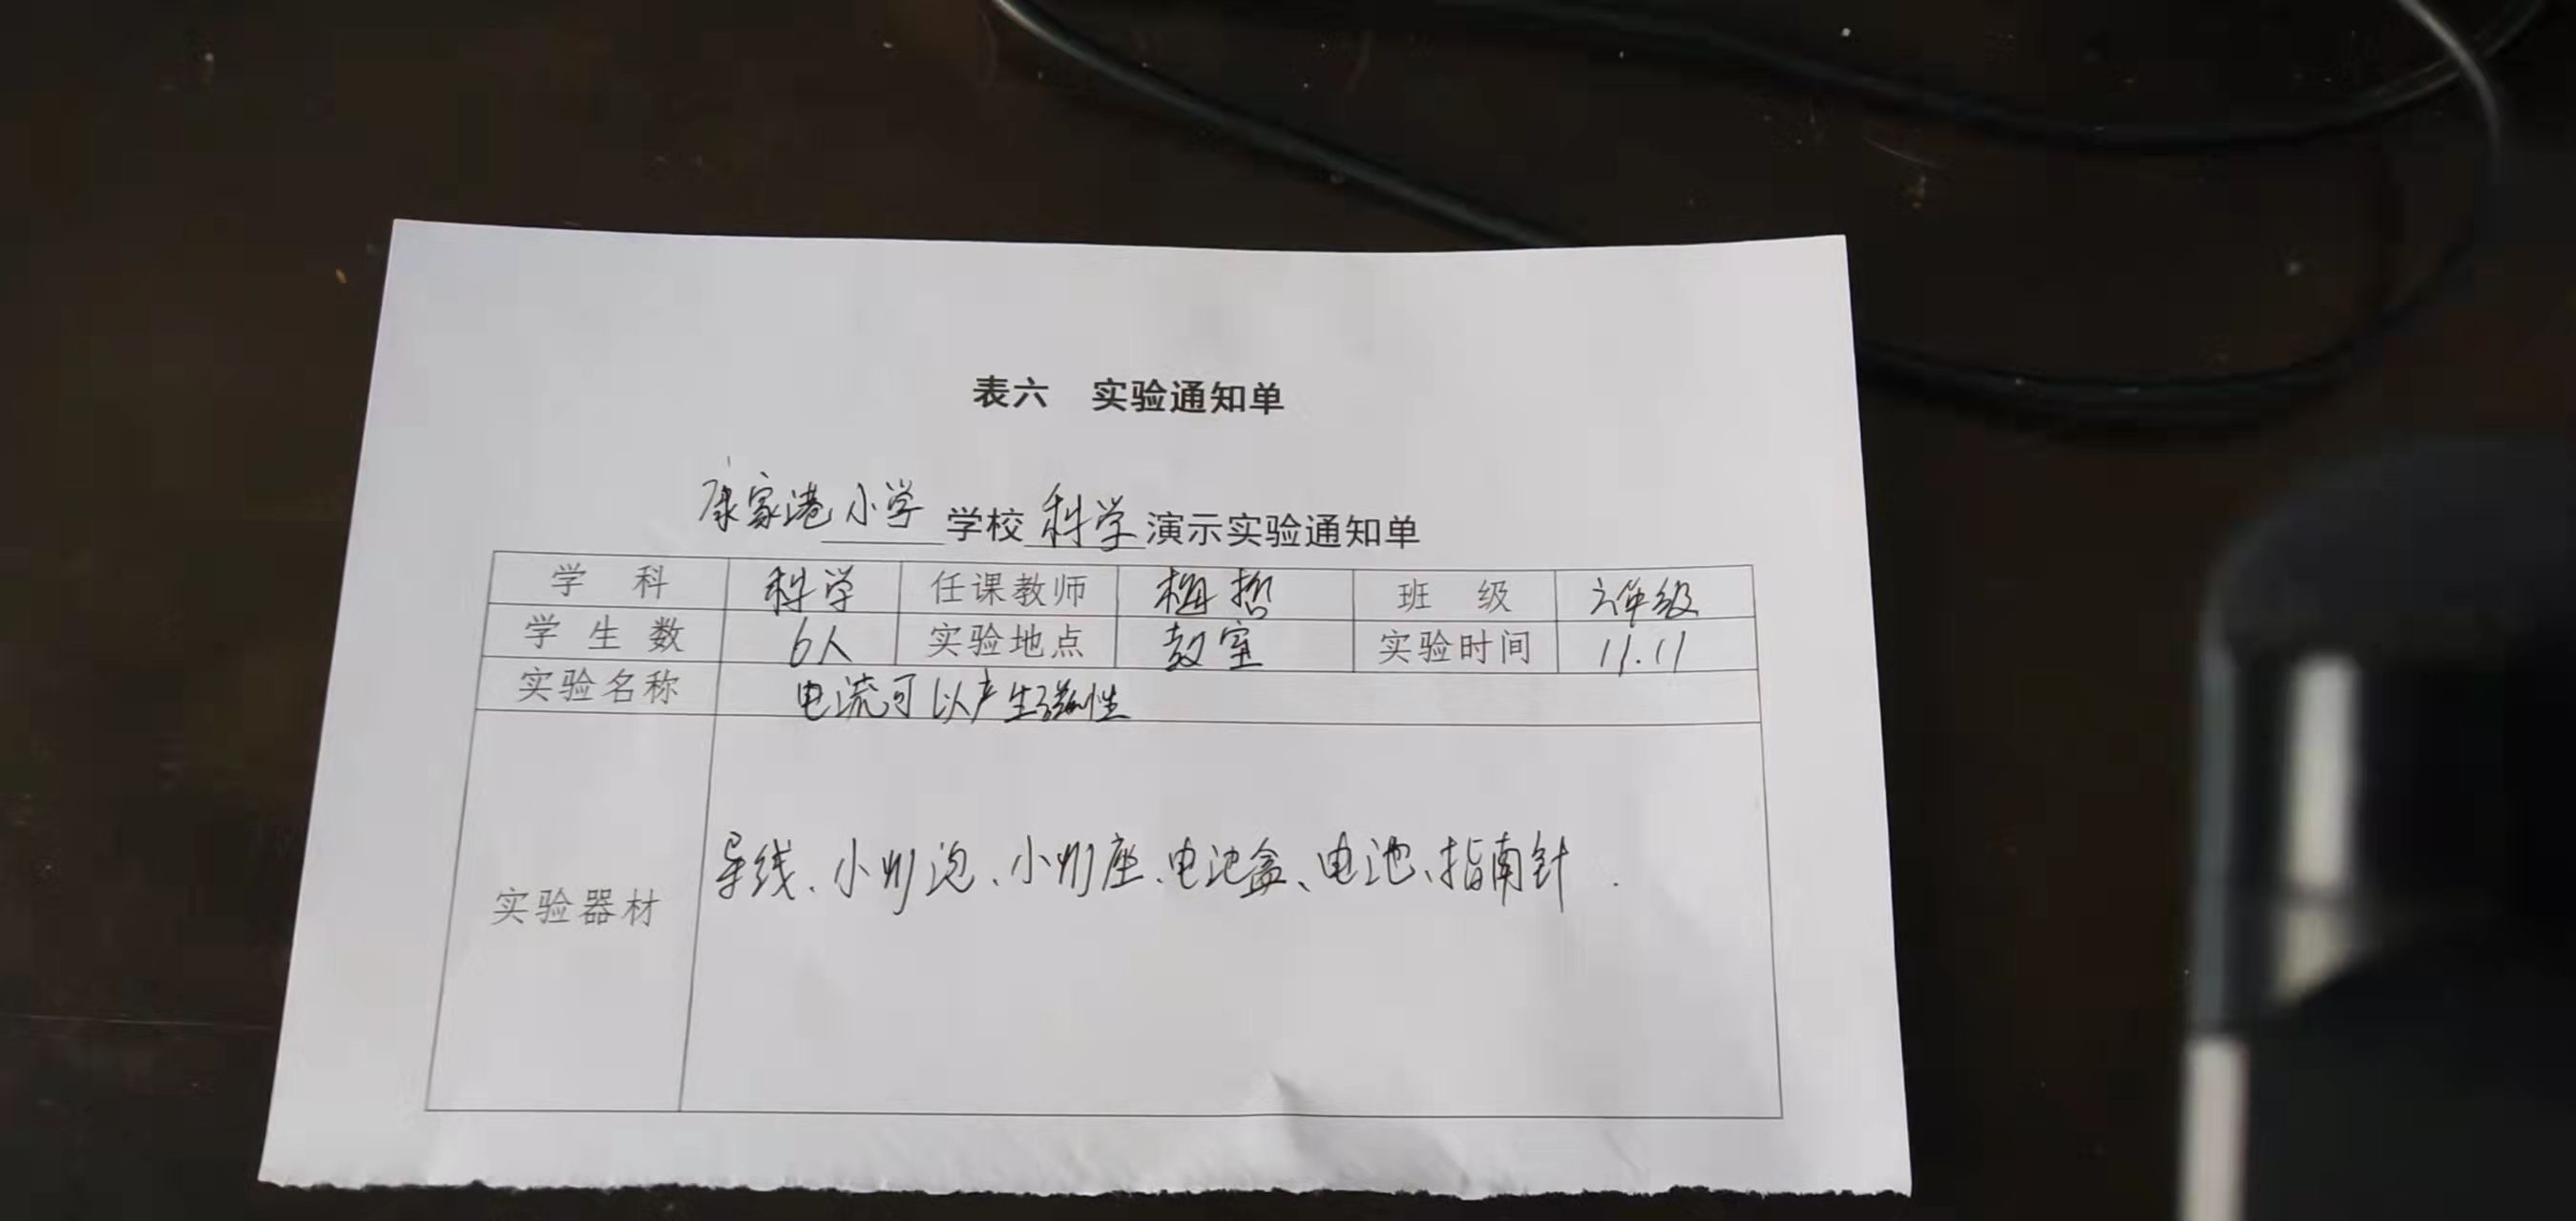 表六 实验通知单
康家港小学 学校 科学 演示实验通知单
学 科 科学 任课教师 梅哲 班 级 六年级
学 生 数 6人 实验地点 教室 实验时间 11.11
实验名称 电流可以产生磁性
导线、小灯泡、小灯座、电池盒、电池、指南针.
实验器材